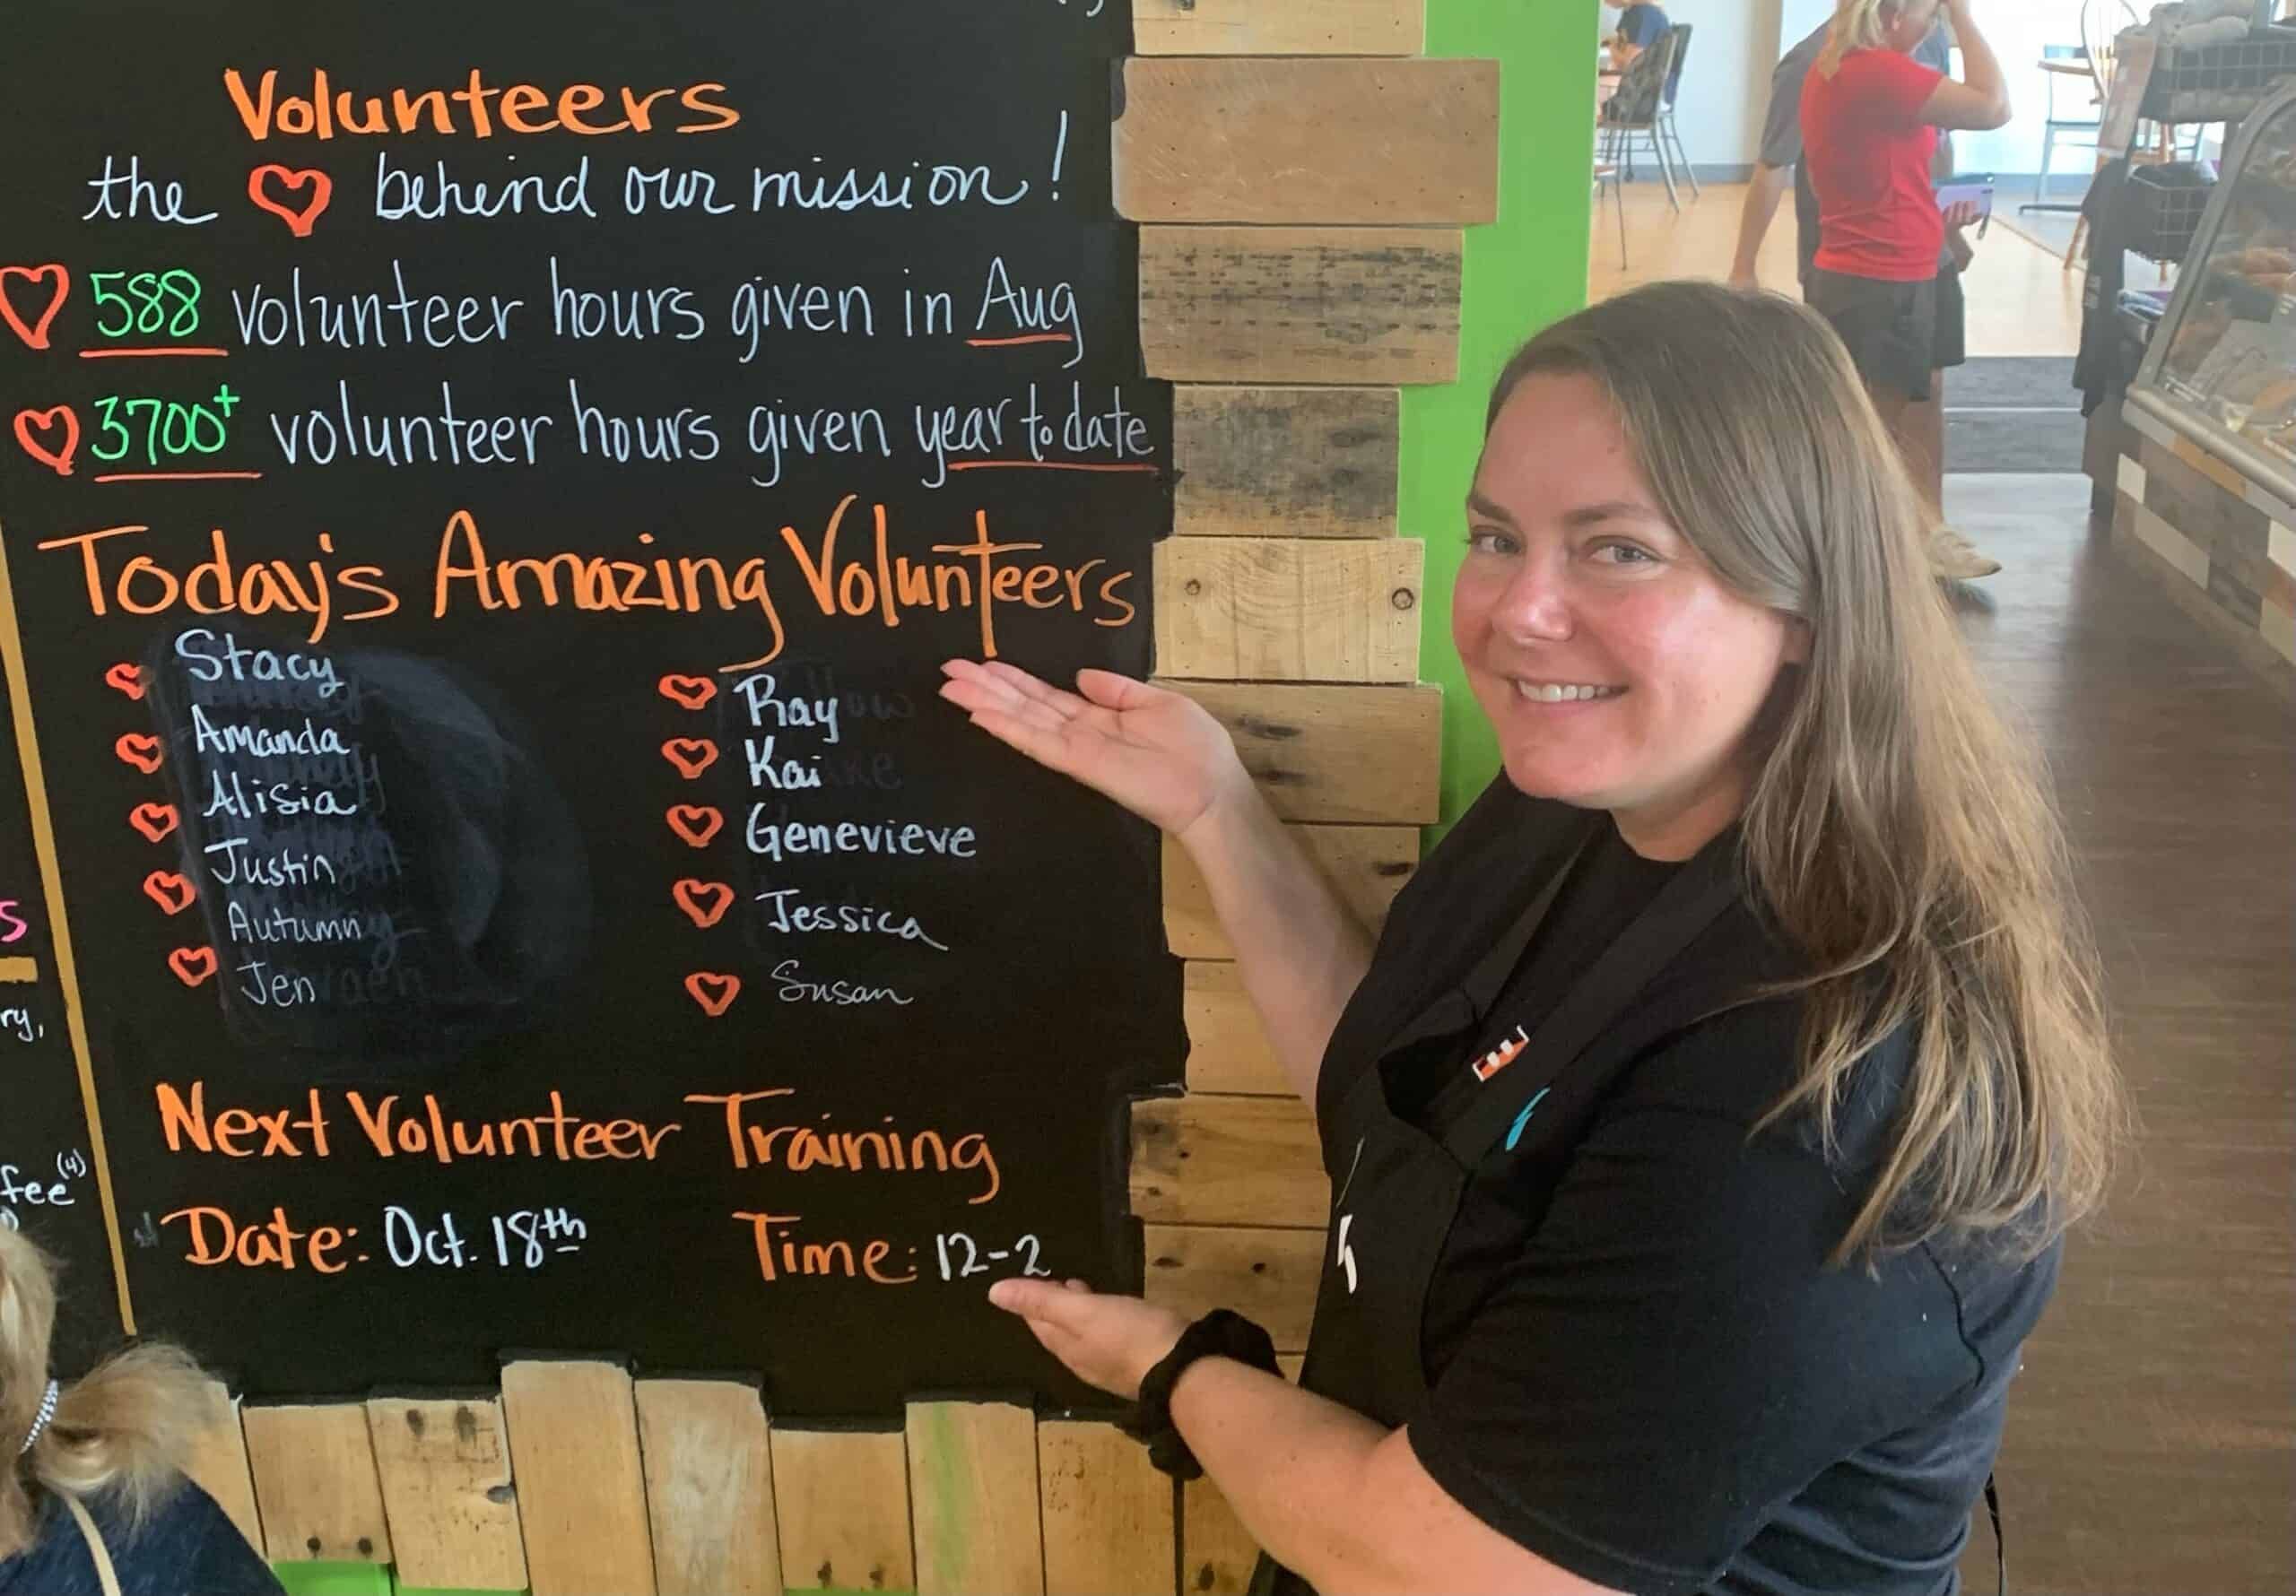 Volunteers
the behind our mission!
588 volunteer hours given in Aug
3700+ volunteer hours given year to date
Today's Amazing Volunteers
Stacy
Amanda
Alisia
Justin
Autumn
Jen
Ray
Kai
Genevieve
Jessica
Susan
Next Volunteer Training
Date: Oct. 18th
Time: 12-2
s
ry,
fee(4)